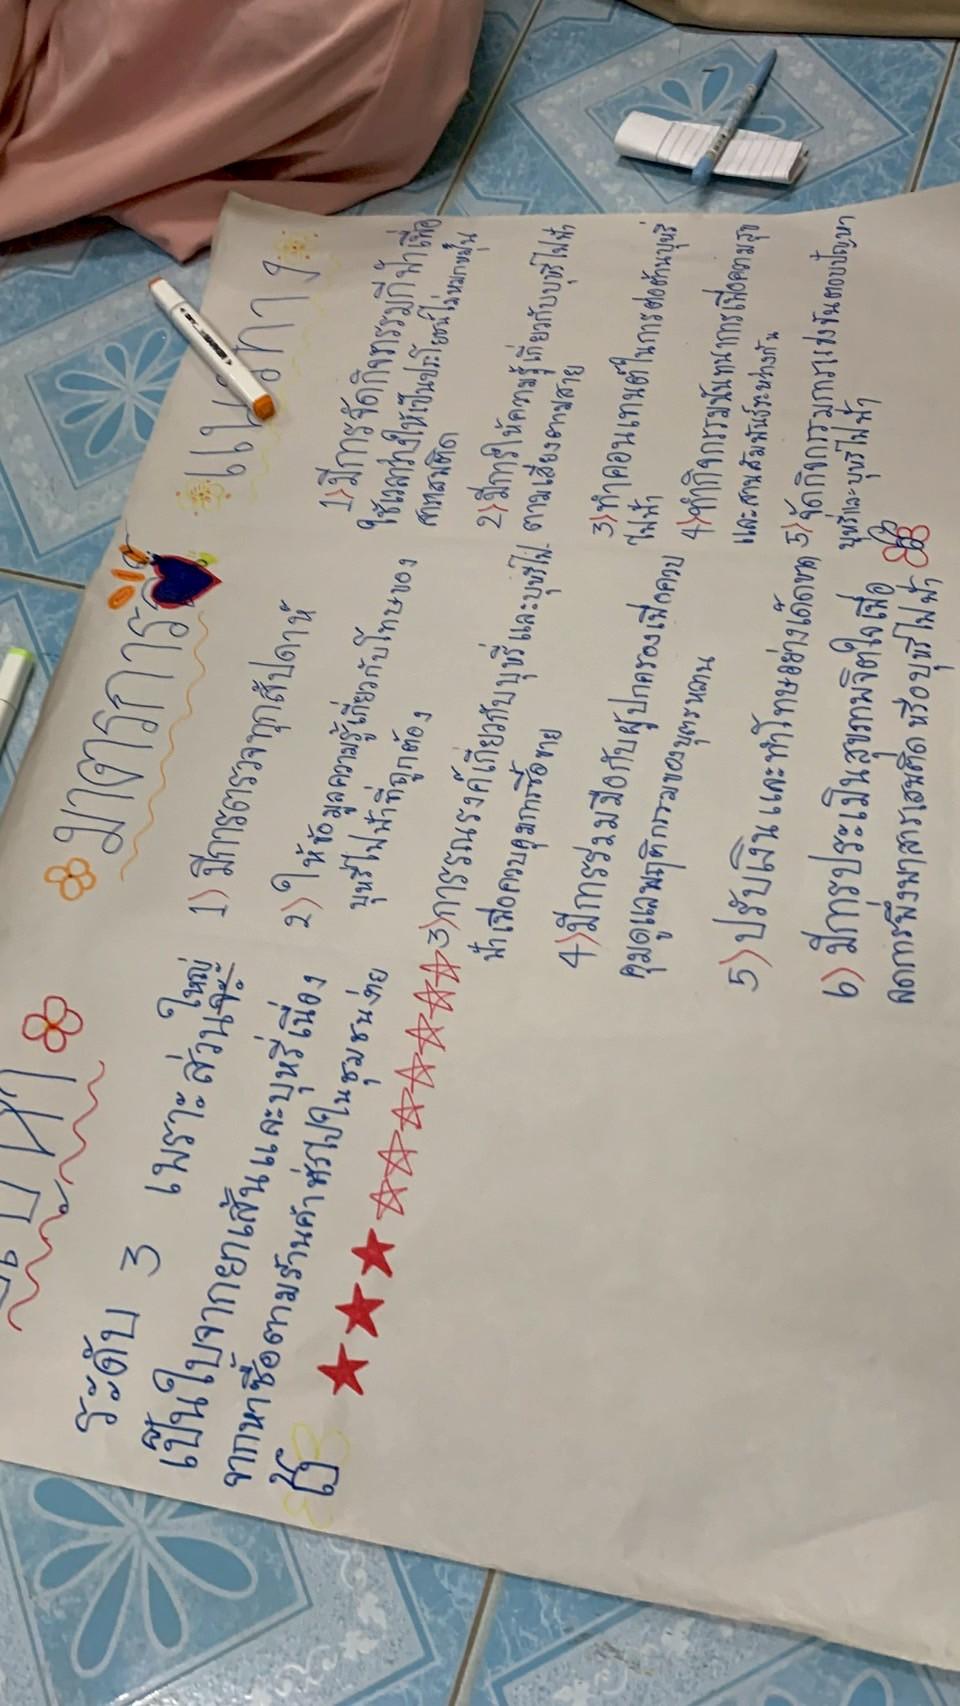 ระดับ 3 เพราะส่วนใหญ่
เป็นใบจากยาเส้นและบุหรี่เนื่อง
จากหาซื้อตามร้านค้าทั่วไปในชุมชนง่าย
มาตรการ
1) มีการตรวจทุกสัปดาห์
2) ให้ข้อมูลความรู้เกี่ยวกับโทษของ
บุหรี่ไฟฟ้าที่ถูกต้อง
3) การรณรงค์เกี่ยวกับบุหรี่และบุหรี่ไฟ-
ฟ้าเพื่อควบคุมการซื้อขาย
4) มีการร่วมมือกับผู้ปกครองเพื่อควบ
คุมดูแลพฤติกรรมของบุตรหลาน
5) ปรับเงินและทำโทษอย่างเด็ดขาด
6) มีการประเมินสุขภาพจิตใจเพื่อ
ลดการพึ่งพาสารเสพติดหรือบุหรี่ไฟฟ้า
แนวทาง
1) มีการจัดกิจกรรมกีฬาเพื่อ
ใช้เวลาว่างให้เป็นประโยชน์ไม่หมกมุ่น
สารเสพติด
2) มีการให้ความรู้เกี่ยวกับบุหรี่ไฟฟ้า
ตามเสียงตามสาย
3) ทำคอนเทนต์ในการต่อต้านบุหรี่
ไฟฟ้า
4) ทำกิจกรรมนันทนาการเพื่อความสุข
และสานสัมพันธ์ระหว่างกัน
5) จัดกิจกรรมการแข่งขันตอบปัญหา
บุหรี่และบุหรี่ไฟฟ้า